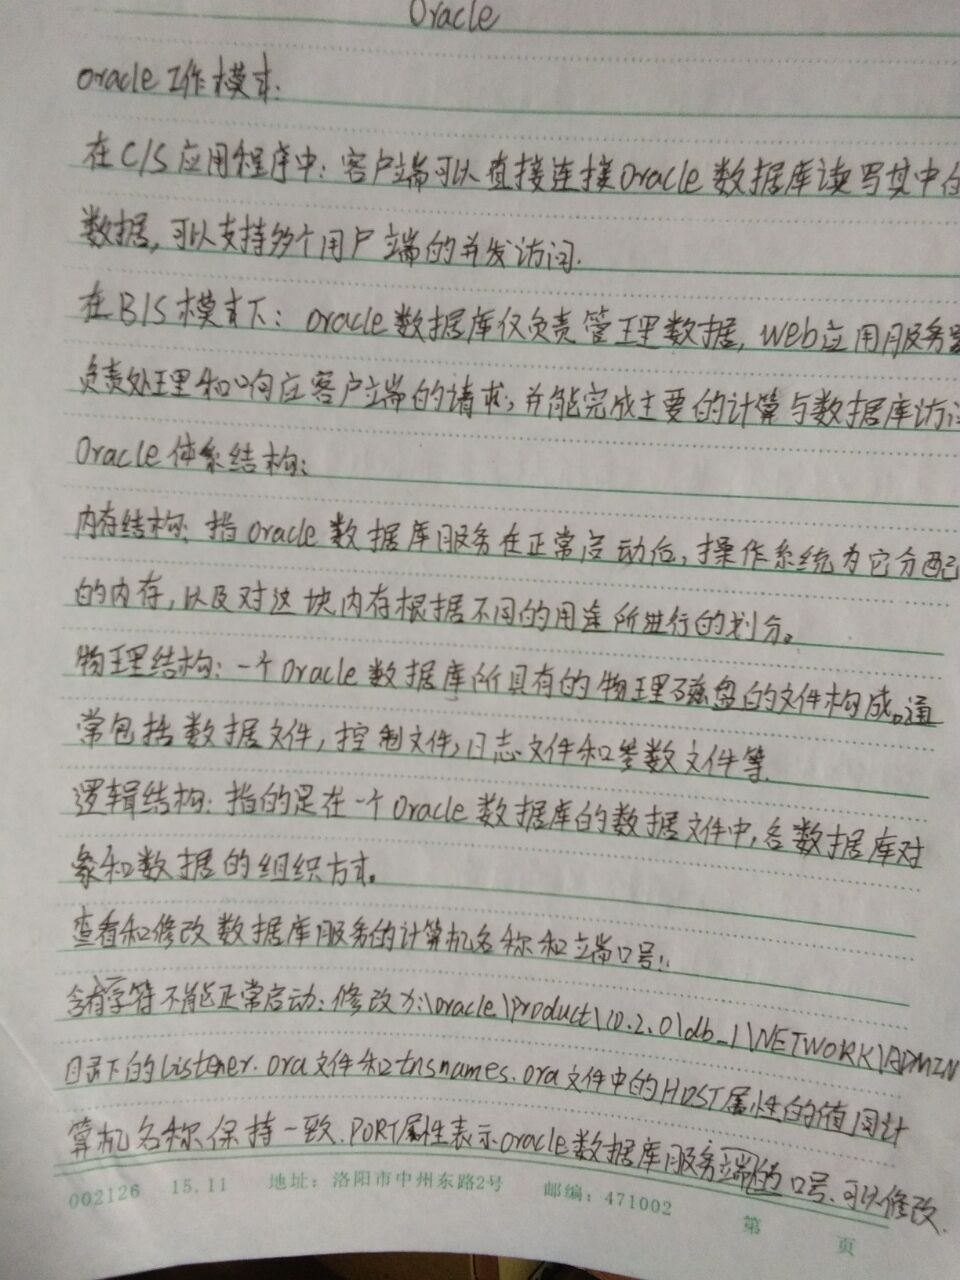 Oracle
Oracle工作模式:
在C/S应用程序中:客户端可以直接连接Oracle数据库读写其中的
数据,可以支持多个用户端的并发访问.
在B/S模式下:Oracle数据库仅负责管理数据,Web应用服务器
负责处理和响应客户端的请求,并能完成主要的计算与数据库访
Oracle体系结构:
内存结构:指Oracle数据库服务在正常启动后,操作系统为它分配
的内存,以及对这块内存根据不同的用途所进行的划分。
物理结构:一个Oracle数据库所具有的物理磁盘的文件构成。通
常包括数据文件,控制文件,日志文件和参数文件等.
逻辑结构:指的是在一个Oracle数据库的数据文件中,各数据库对
象和数据的组织方式。
查看和修改数据库服务的计算机名称和端口号:
含有字符不能正常启动:修改 \oracle\product\10.2.0\db_1\NETWORK\ADMIN
目录下的listener.ora文件和tnsnames.ora文件中的HOST属性的值同计
算机名称保持一致.PORT属性表示oracle数据库服务端 口号.可以修改.
002126 15.11 地址:洛阳市中州东路2号 邮编:471002
第 页